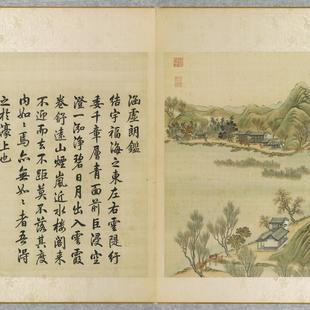 涵虛朗鑑
結宇福海之東左右雲隄紆
委千章層青面前巨浸空
澄一泓淨碧日月出入雲霞
卷舒遠山煙嵐近水樓閣來
不迎而去不距莫不落其度
內如〻焉亦無如〻者吾得
之於濠上也